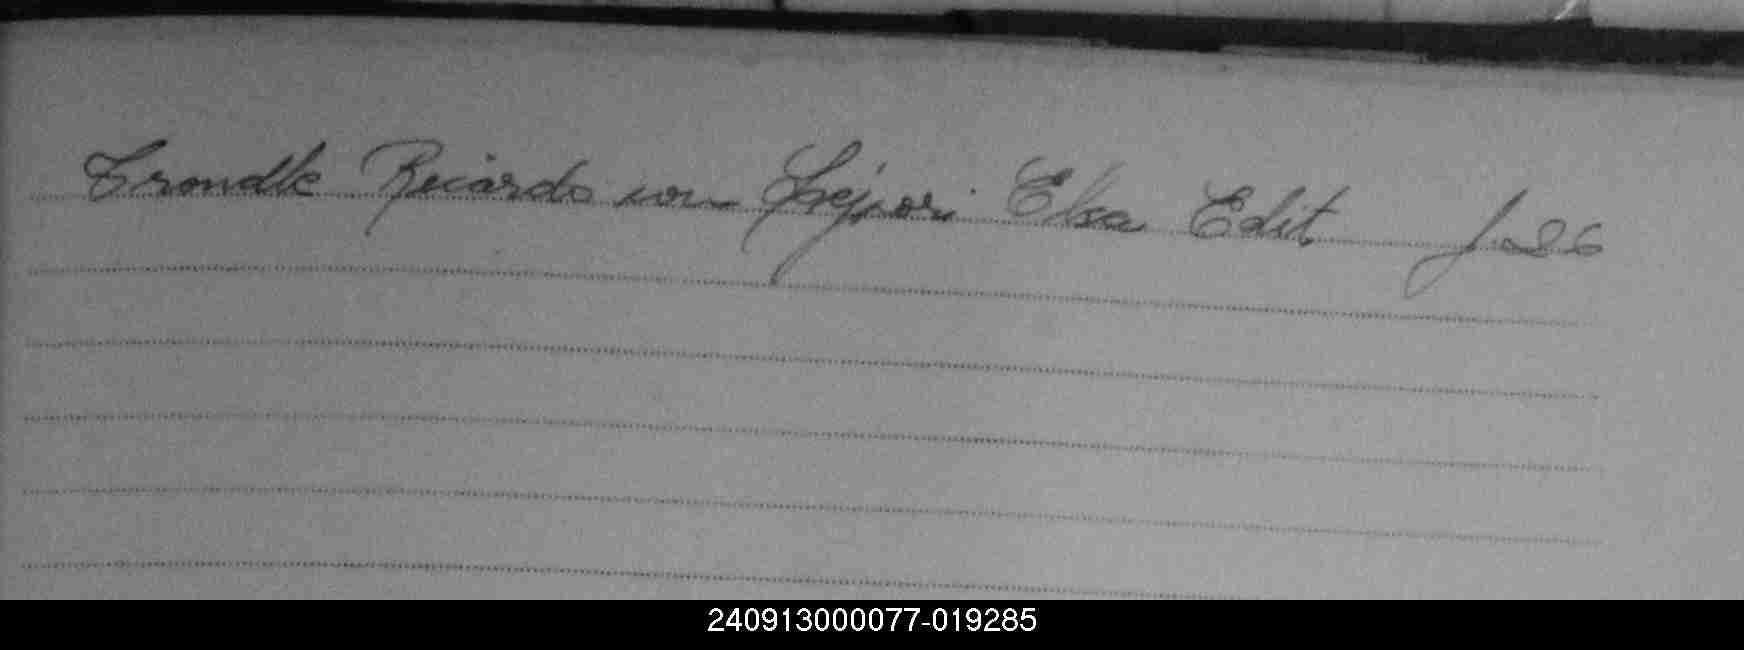 Trondle Ricardo con Lépori Elsa Edit f. 26
240913000077-019285